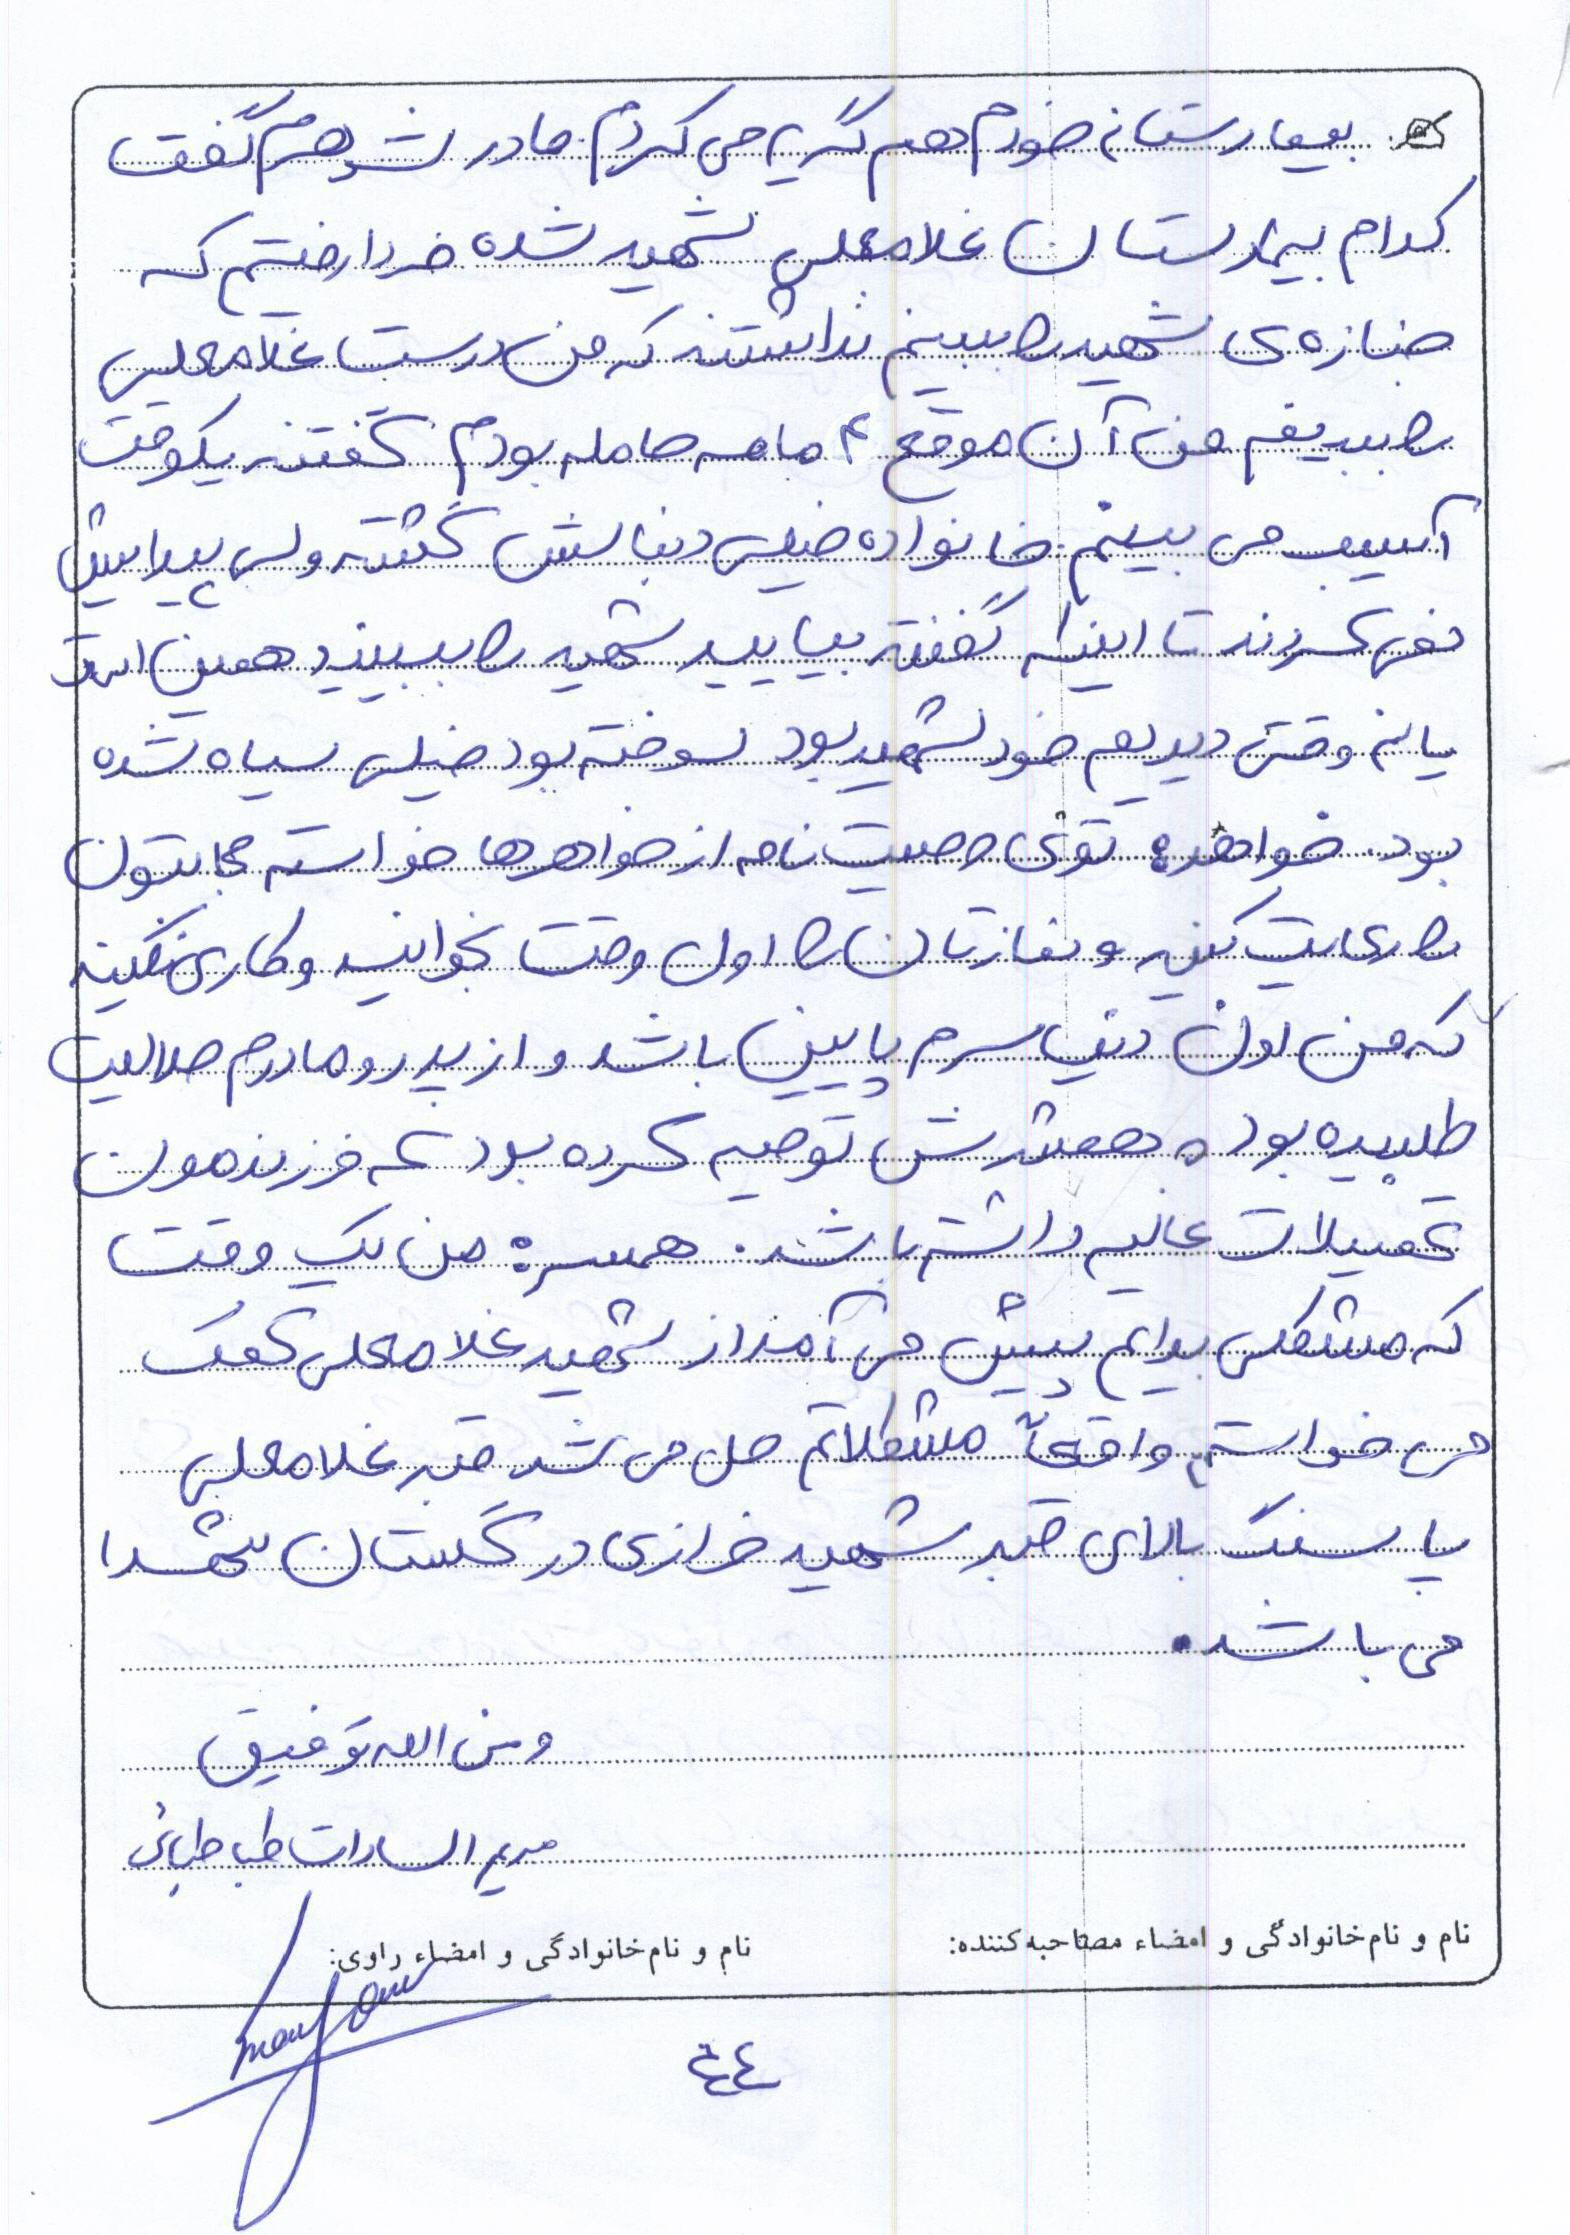 بیمارستانه خودم هم گریه می کردم مادر شوهرم گفت
کدام بیمارستان غلامعلی شهید شده فردا رفتیم که
جنازه ی شهید را ببینم نذاشتند که من درست غلامعلی
را ببینم من آن موقع ۴ ماهه حامله بودم گفتند یکوقت
آسیب می بینم. خانواده خیلی دنبالش گشته ولی پیدایش
نمی کردند تا اینکه گفتند بیایید شهید را ببینید همین است
یا نه وقتی دیدیم خود شهید بود سوخته بود خیلی سیاه شده
بود. خواهره توی وصیت نامه از خواهرها خواسته حجابتون
را رعایت کنید و نمازتان را اول وقت بخوانید و کاری نکنید
که من اون دنیا سرم پایین باشد و از پدر و مادرم حلالیت
طلبیده بود و همسرش توصیه کرده بود که فرزندمون
تحصیلات عالیه داشته باشد. همسره: من یک وقت
که مشکلی برایم پیش می آمد از شهید غلامعلی کمک
می خواستم واقعاً مشکلاتم حل می شد قبر غلامعلی
با سنگ بالای قبر شهید خرازی در گلستان شهدا
می باشد.
ومن الله توفیق
مریم السادات طباطبائی
نام و نام خانوادگی و امضاء مصاحبه کننده: نام و نام خانوادگی و امضاء راوی:
maryam
٤٤